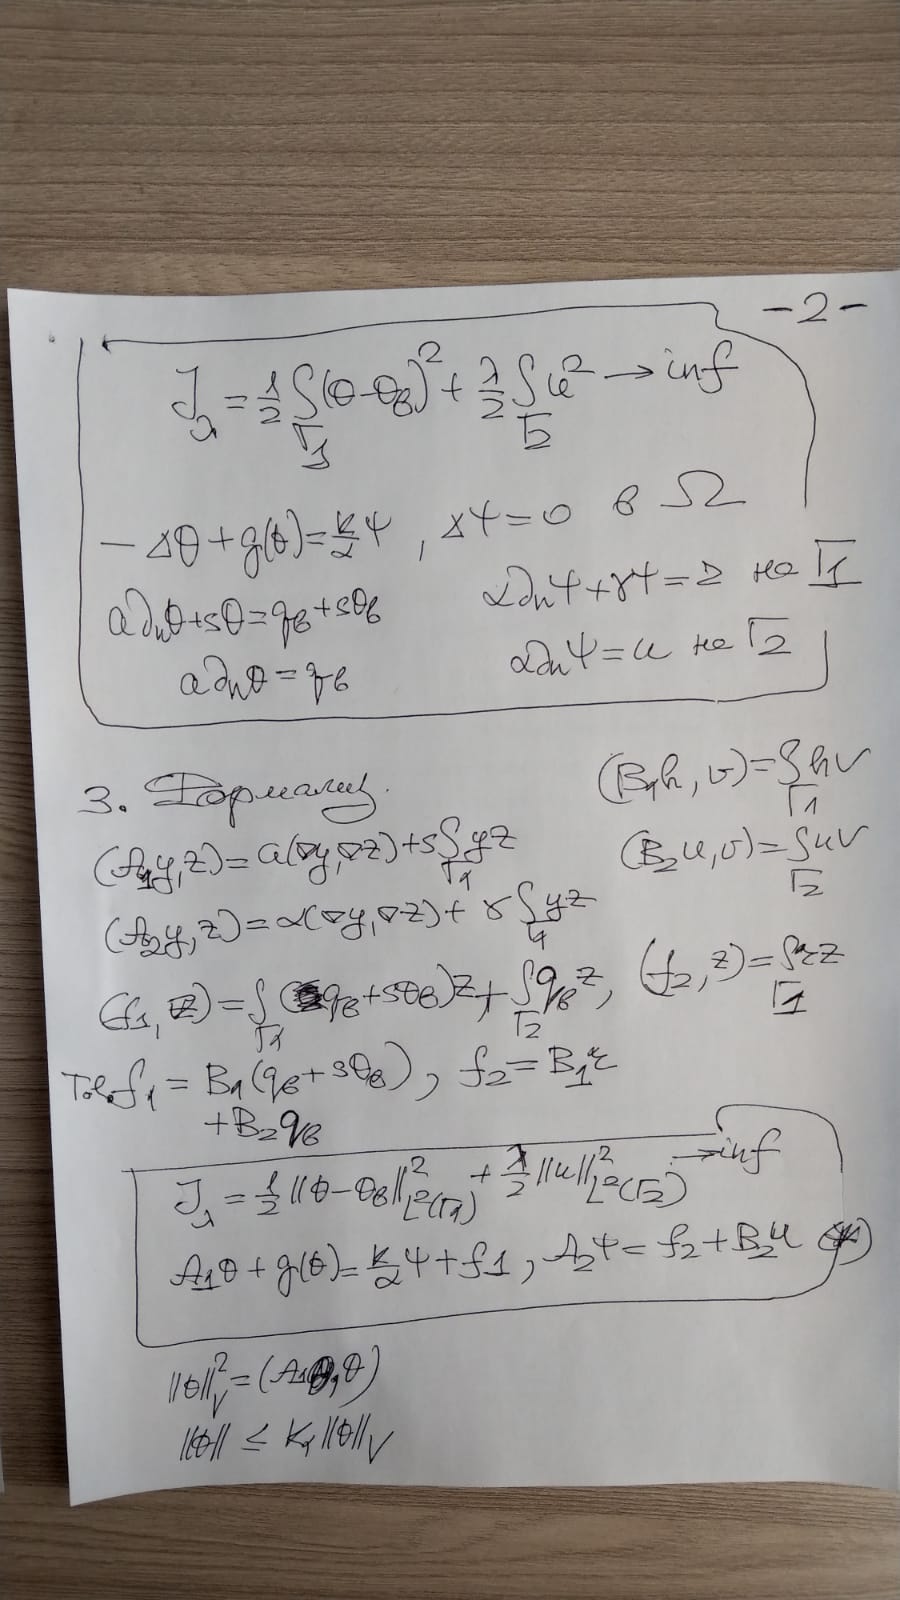 -2-
J_λ = 1/2 ∫_{Γ_1} (θ-θ_b)^2 + λ/2 ∫_{Γ_2} u^2 → inf
-Δθ + g(θ) = k/α ψ, Δψ = 0 в Ω
a∂_nθ + sθ = q_b + sθ_b α∂_nψ + γψ = r на Γ_1
a∂_nθ = q_b α∂_nψ = u на Γ_2
3. Формализ.
(B_1h, v) = ∫_{Γ_1} hv
(A_1y, z) = a(∇y, ∇z) + s∫_{Γ_1} yz
(B_2u, v) = ∫_{Γ_2} uv
(A_2y, z) = α(∇y, ∇z) + γ∫_{Γ_1} yz
(f_1, z) = ∫_{Γ_1} (q_b + sθ_b)z + ∫_{Γ_2} q_b z, (f_2, z) = ∫_{Γ_1} rz
Т.е. f_1 = B_1(q_b + sθ_b), f_2 = B_1r
+ B_2q_b
J_λ = 1/2 ||θ-θ_b||^2_{L^2(Γ_1)} + λ/2 ||u||^2_{L^2(Γ_2)} → inf
A_1θ + g(θ) = k/α ψ + f_1, A_2ψ = f_2 + B_2u (*)
||θ||^2_V = (A_1θ, θ)
||θ|| ≤ K_1||θ||_V